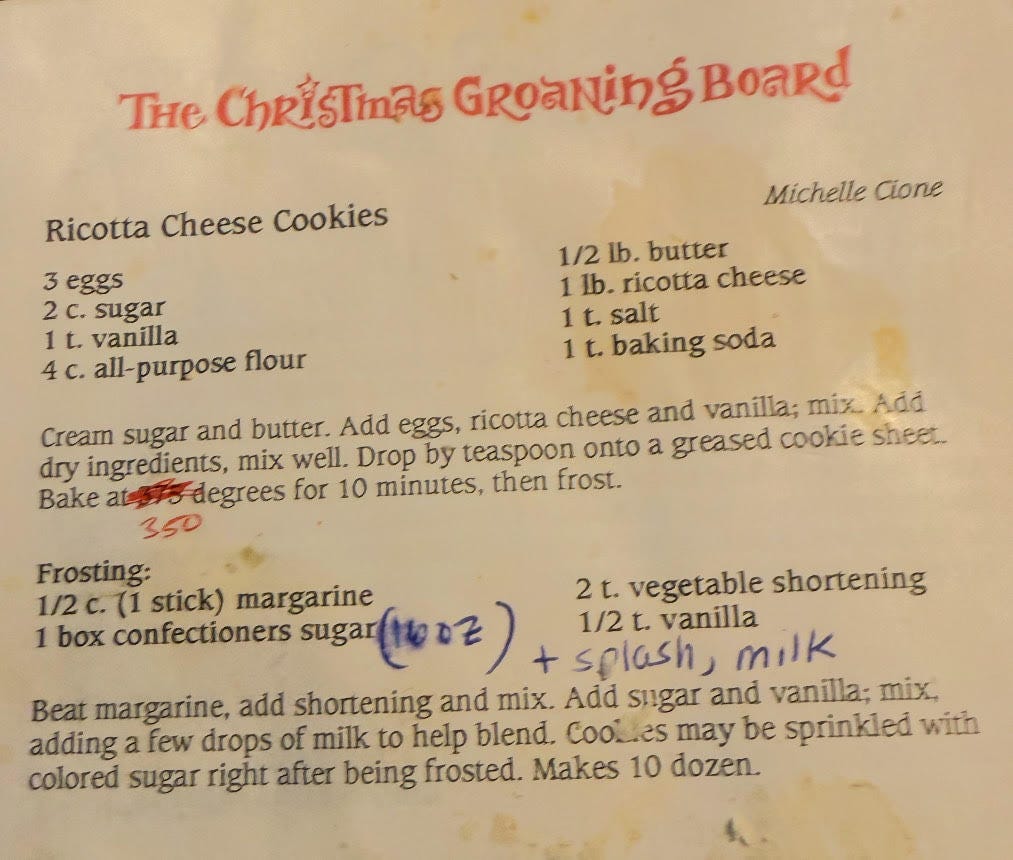 The Christmas Groaning Board
Michelle Cione
Ricotta Cheese Cookies
3 eggs
2 c. sugar
1 t. vanilla
4 c. all-purpose flour
1/2 lb. butter
1 lb. ricotta cheese
1 t. salt
1 t. baking soda
Cream sugar and butter. Add eggs, ricotta cheese and vanilla; mix. Add
dry ingredients, mix well. Drop by teaspoon onto a greased cookie sheet.
Bake at 375 degrees for 10 minutes, then frost.
350
Frosting:
1/2 c. (1 stick) margarine
1 box confectioners sugar (16 oz)
2 t. vegetable shortening
1/2 t. vanilla
+ splash, milk
Beat margarine, add shortening and mix. Add sugar and vanilla; mix,
adding a few drops of milk to help blend. Cookies may be sprinkled with
colored sugar right after being frosted. Makes 10 dozen.